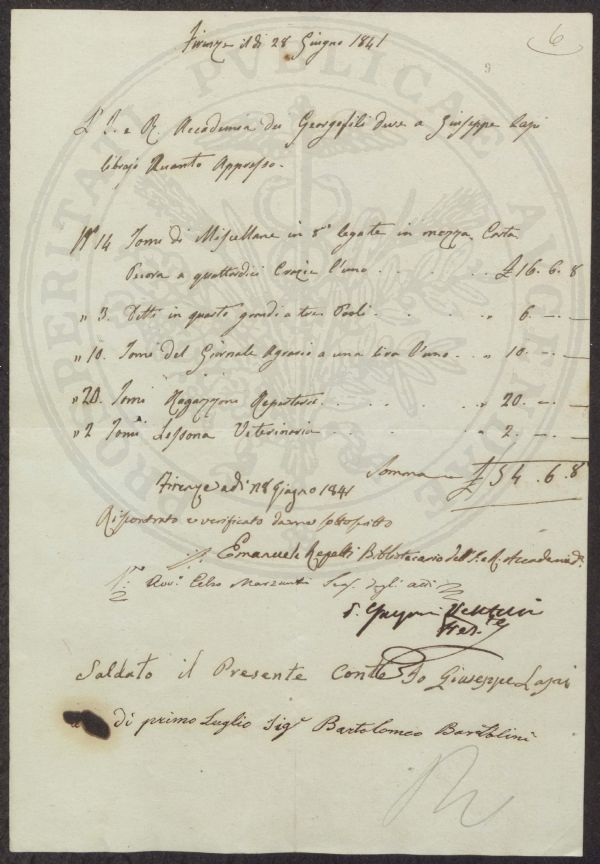 6
Firenze il dì 28 Giugno 1841
9
L'I. e R. Accademia dei Georgofili Deve a Giuseppe Lapi
librajo Quanto Appresso.
N° 14 Tomi di Miscellane in 8° legate in mezza Carta
Pecora a quattordici Crazie l'uno . . . . . . £ 16. 6. 8
" 3. Detti in quarto grandi a tre Paoli . . . . . " 6. — . —
" 10. Tomi del Giornale Agrario a una lira l'uno . . . " 10. — . —
" 20. Tomi Ragazzoni Repertorio . . . . . " 20. — . —
" 2 Tomi Lessona Veterinaria . . . . . " 2. — . —
Somma £ 54. 6. 8
Firenze a dì 28 Giugno 1841
Riscontrato e verificato da me sottoscritto
Emanuele Repetti Bibliotecario dell'I. e R. Accademia
Avv. Celso Marzucchi Seg. degli atti
Pres.te
Saldato il Presente Conto Io Giuseppe Lapi
di primo Luglio Sig.r Bartolomeo Bartolini
PROSPERITATI PUBLICAE AUGENDAE